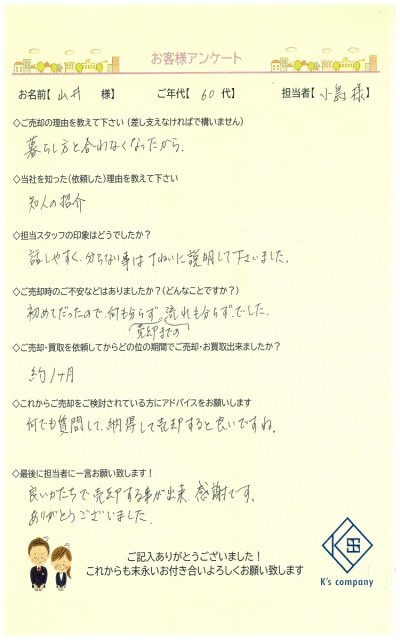 お客様アンケート
お名前【 山井 様】 ご年代【 60 代】 担当者【 小島 様 】
◇ご売却の理由を教えて下さい (差し支えなければで構いません)
暮らし方と合わなくなったから.
◇当社を知った(依頼した)理由を教えて下さい
知人の招介
◇担当スタッフの印象はどうでしたか？
話しやすく、分らない事はていねいに説明して下さいました.
◇ご売却時のご不安などはありましたか？(どんなことですか？)
初めてだったので、何も分らず、流れも分らずでした.
売却までの
◇ご売却・買取を依頼してからどの位の期間でご売却・お買取出来ましたか？
約1ヶ月
◇これからご売却をご検討されている方にアドバイスをお願いします
何でも質問して、納得して売却すると良いですね.
◇最後に担当者に一言お願い致します！
良いかたちで売却する事が出来、感謝です.
ありがとうございました.
ご記入ありがとうございました！
これからも末永いお付き合いよろしくお願い致します
K's company